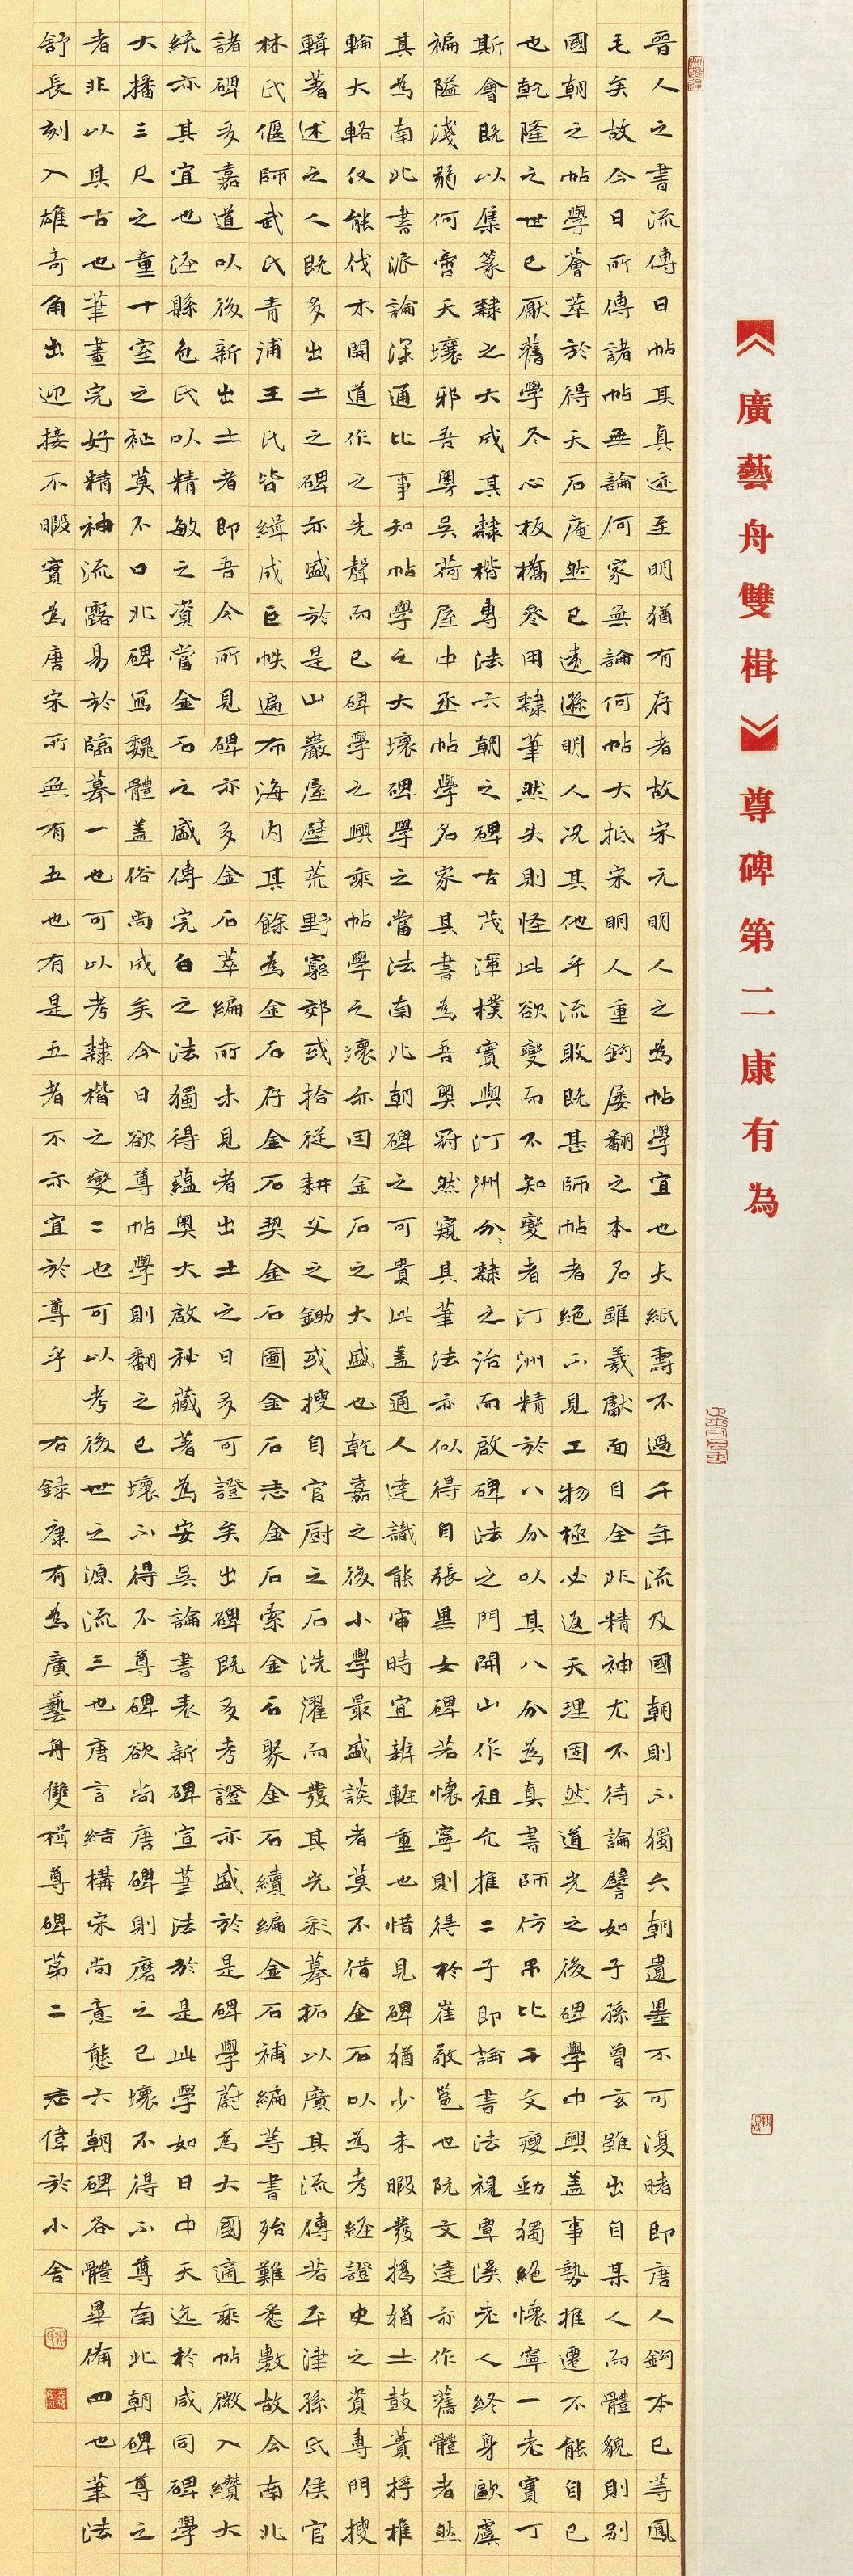 《廣藝舟雙楫》尊碑第二康有為
晉人之書流傳曰帖其真迹至明猶有存者故宋元明人之為帖學宜也夫紙壽不過千年流及國朝則不獨六朝遺墨不可復睹即唐人鈎本已等鳳
毛矣故今日所傳諸帖無論何家無論何帖大抵宋明人重鈎屡翻之本名雖羲獻面目全非精神尤不待論譬如子孫曾玄雖出自某人而體貌則别
國朝之帖學薈萃於得天石庵然已遠遜明人況其他乎流敗既甚師帖者絕不見工物極必返天理固然道光之後碑學中興盖事勢推遷不能自已
也乾隆之世已厭舊學冬心板橋參用隸筆然失則怪此欲變而不知變者汀洲精於八分以其八分為真書師仿吊比干文瘦勁獨絕懷寧一老實丁
斯會既以集篆隸之大成其隸楷專法六朝之碑古茂渾樸實與汀洲分隸之治而啟碑法之門開山作祖允推二子即論書法視覃溪老人終身歐虞
褊隘淺弱何啻天壤邪吾粵吳荷屋中丞帖學名家其書為吾粵冠然窺其筆法亦似得自張黑女碑若懷寧則得於崔敬邕也阮文達亦作舊體者然
其為南北書派論深通此事知帖學之大壞碑學之當法南北朝碑之可貴此盖通人達識能審時宜辨輕重也惜見碑猶少未暇發撝猶土鼓蕢桴椎
輪大輅仅能伐木開道作之先聲而已碑學之興乘帖學之壞亦因金石之大盛也乾嘉之後小學最盛談者莫不借金石以為考經證史之資專門搜
輯著述之人既多出土之碑亦盛於是山巖屋壁荒野窮郊或拾從耕父之鋤或搜自官厨之石洗濯而發其光彩摹拓以廣其流傳若平津孫氏侯官
林氏偃師武氏青浦王氏皆緝成巨帙遍布海内其餘為金石存金石契金石圖金石志金石索金石聚金石續編金石補編等書殆難悉數故今南北
諸碑多嘉道以後新出土者即吾今所見碑亦多金石萃編所未見者出土之日多可證矣出碑既多考證亦盛於是碑學蔚為大國適乘帖微入纘大
統亦其宜也涇縣包氏以精敏之資當金石之盛傳完白之法獨得蘊奧大啟秘藏著為安吳論書表新碑宣筆法於是此學如日中天迄於咸同碑學
大播三尺之童十室之社莫不口北碑寫魏體盖俗尚成矣今日欲尊帖學則翻之已壞不得不尊碑欲尚唐碑則磨之已壞不得不尊南北朝碑尊之
者非以其古也筆畫完好精神流露易於臨摹一也可以考隸楷之變二也可以考後世之源流三也唐言結構宋尚意態六朝碑各體畢備四也筆法
舒長刻入雄奇角出迎接不暇實為唐宋所無有五也有是五者不亦宜於尊乎 右錄康有為廣藝舟雙楫尊碑第二 志偉於小舍